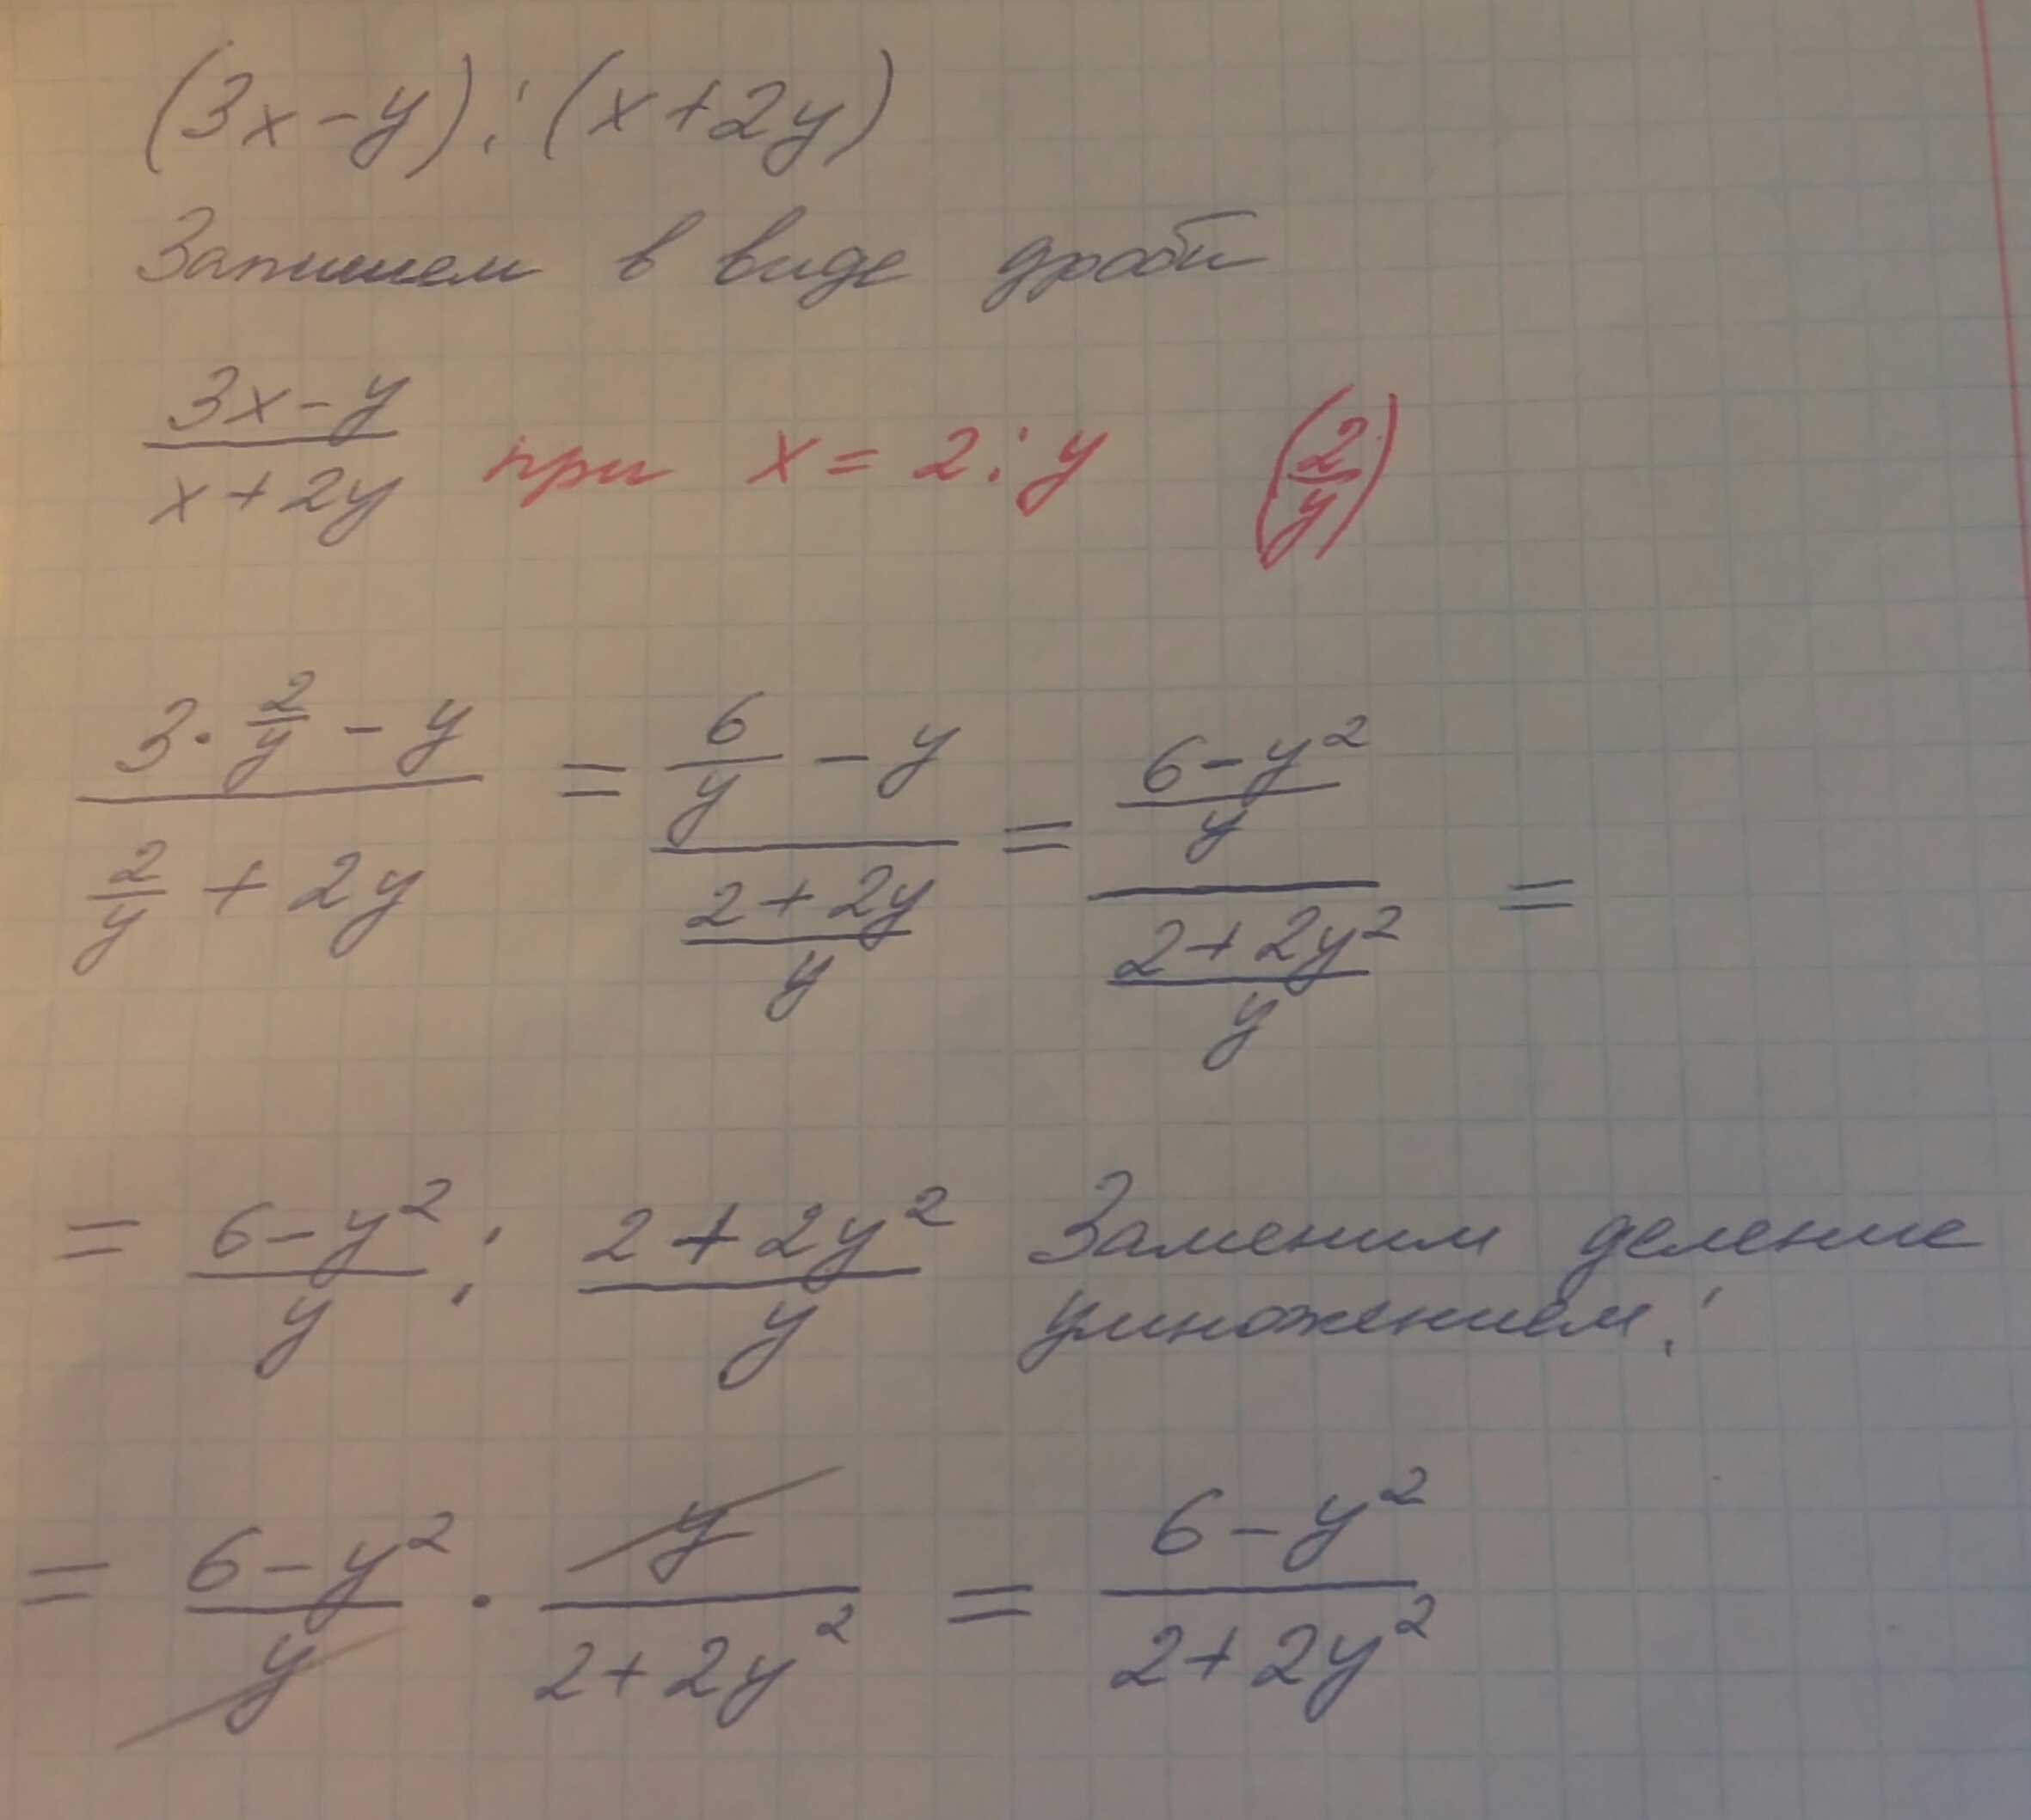 (3x-y):(x+2y)
Запишем в виде дроби
\frac{3x-y}{x+2y} при x = 2:y (\frac{2}{y})
\frac{3·\frac{2}{y}-y}{\frac{2}{y}+2y} = \frac{\frac{6}{y}-y}{\frac{2+2y}{y}} = \frac{\frac{6-y^2}{y}}{\frac{2+2y^2}{y}} =
= \frac{6-y^2}{y} : \frac{2+2y^2}{y} Заменим деление
умножением:
= \frac{6-y^2}{y} · \frac{y}{2+2y^2} = \frac{6-y^2}{2+2y^2}